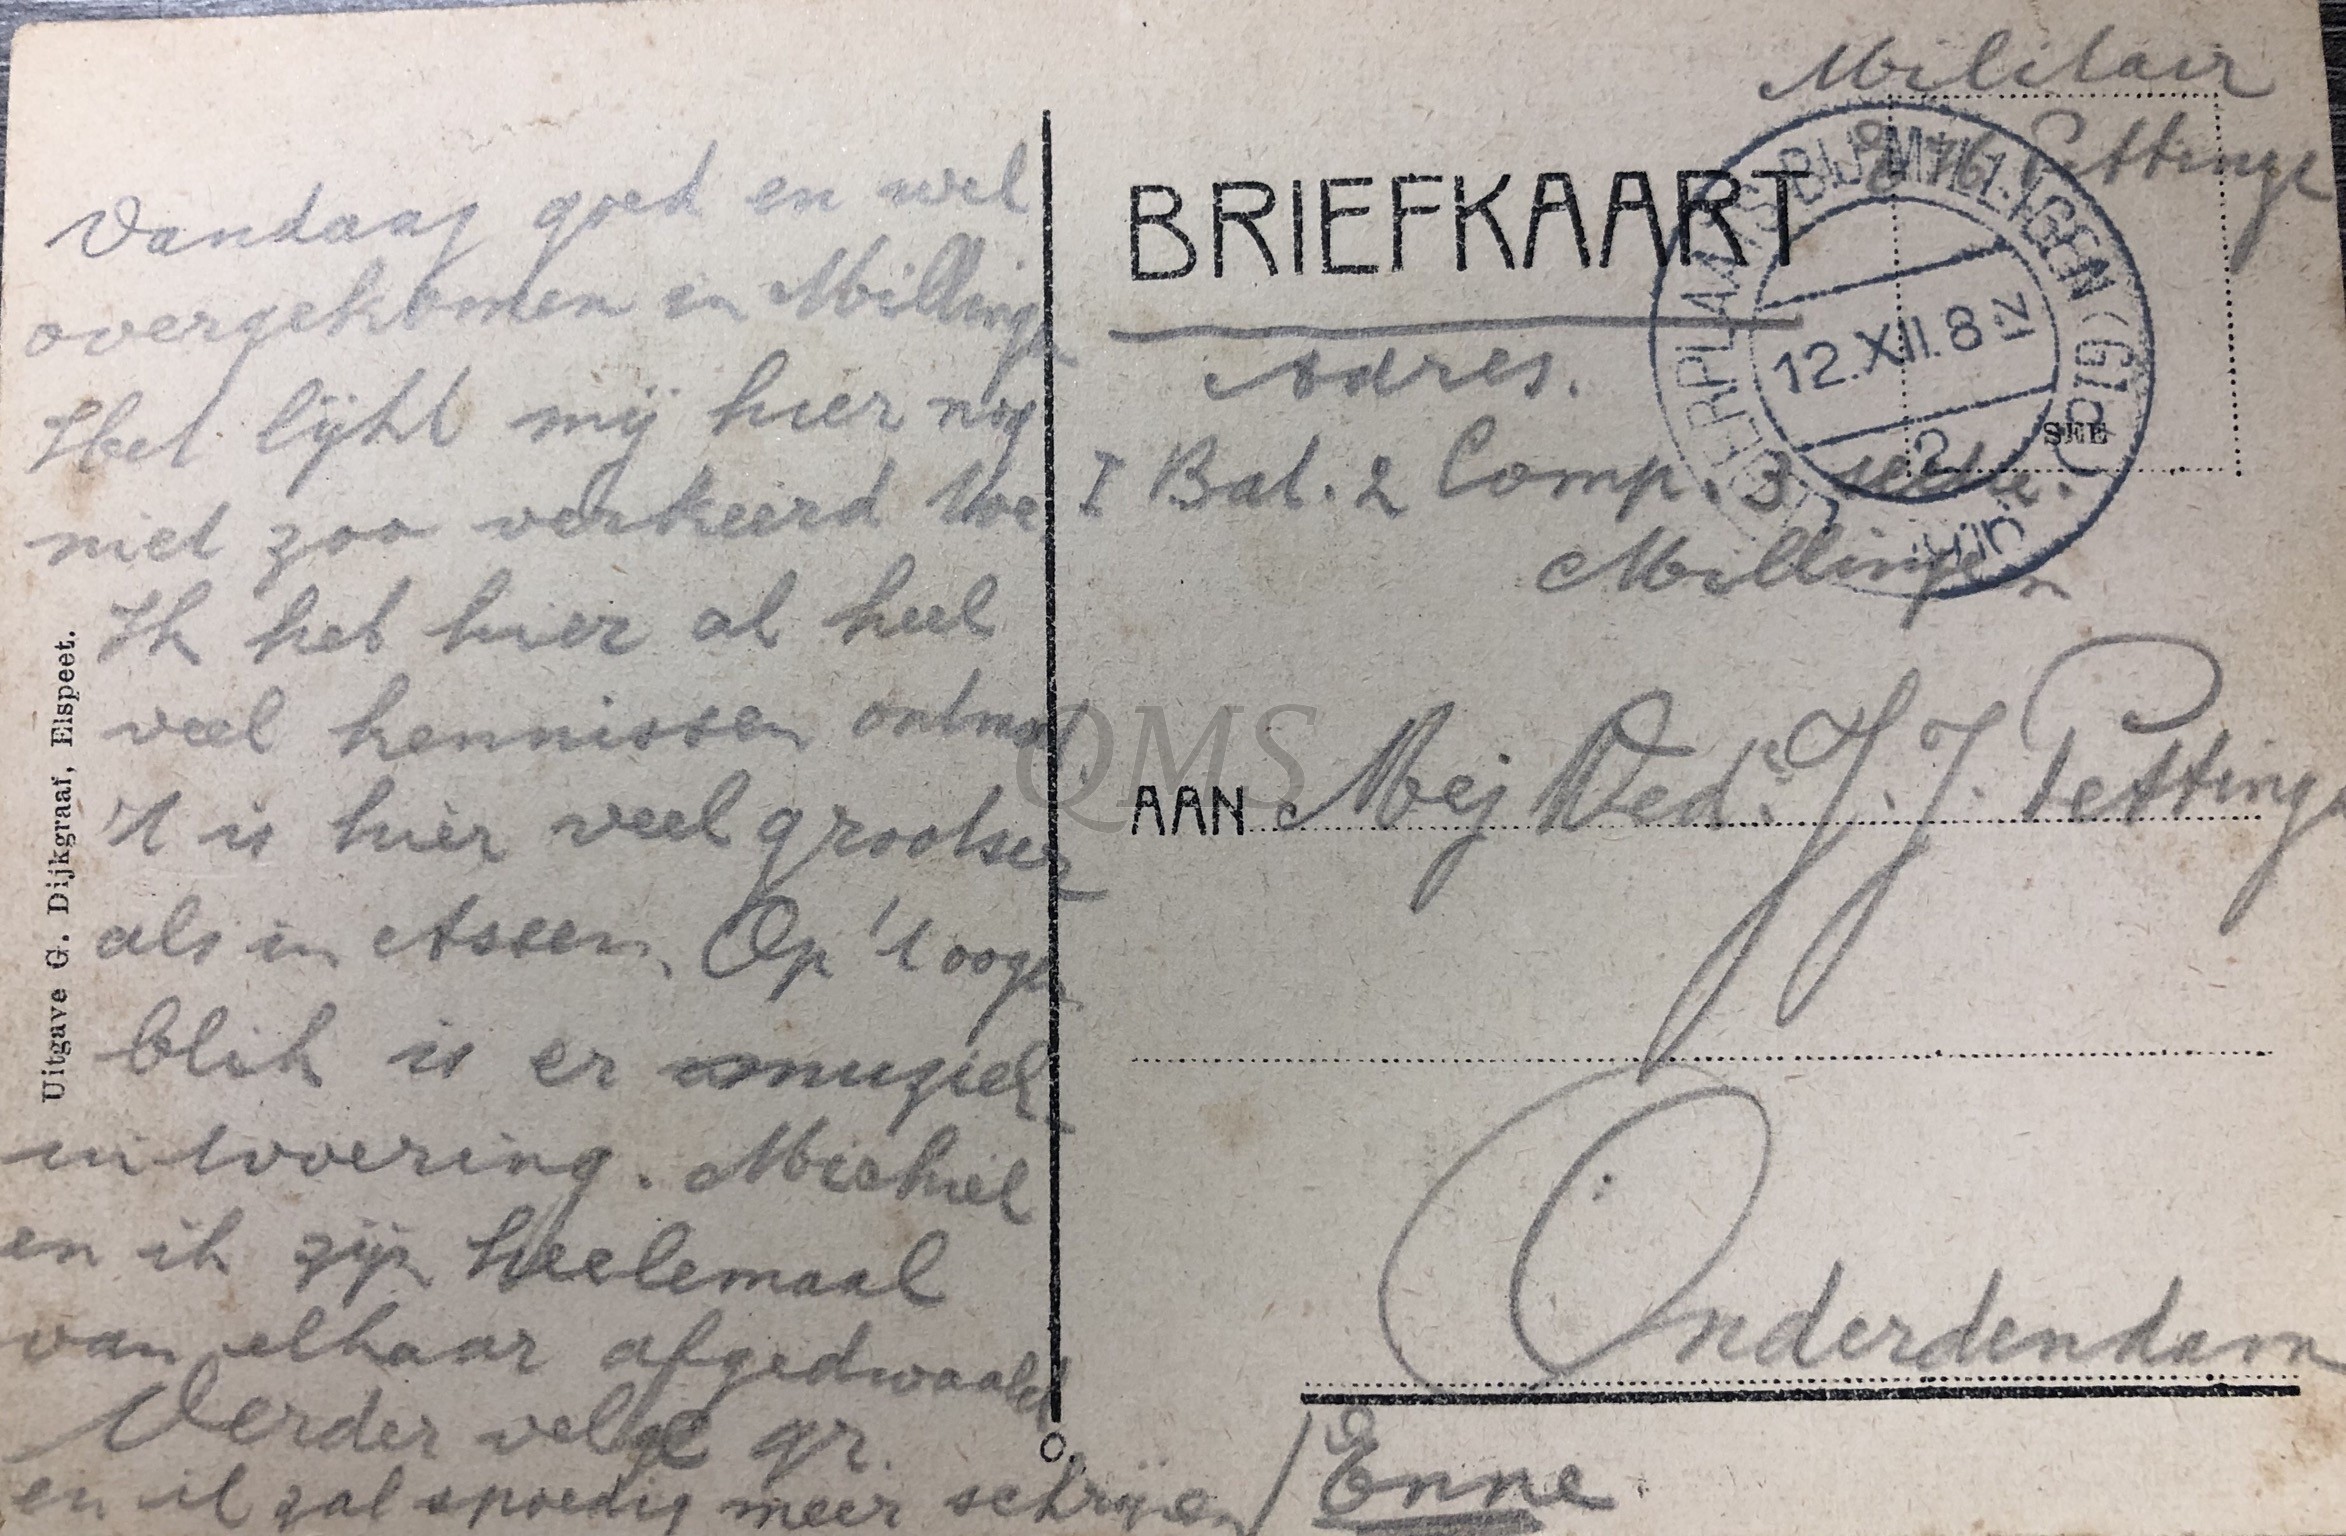 Vandaag goed en wel
overgekomen in Millingen
Het lijkt mij hier nog
niet zoo verkeerd toe
Ik heb hier al heel
veel kennissen ontmoet
't is hier veel grootser
als in Assen. Op 't oogen
blik is er muziek
uitvoering. Michiel
en ik zijn heelemaal
van elkaar afgedwaald
Verder velge gr.
en ik zal spoedig meer schrijven / Enne
Uitgave G. Dijkgraaf, Elspeet.
Militair
E H Pettinga
BRIEFKAART
LEGERPLAATS BIJ MILLIGEN (GLD)
12.XII.8-12V
2
Adres.
I Bat. 2 Comp. 3 sectie.
Millingen
AAN Mej Wed.e J. J. Pettinga
Onderdendam
QMS